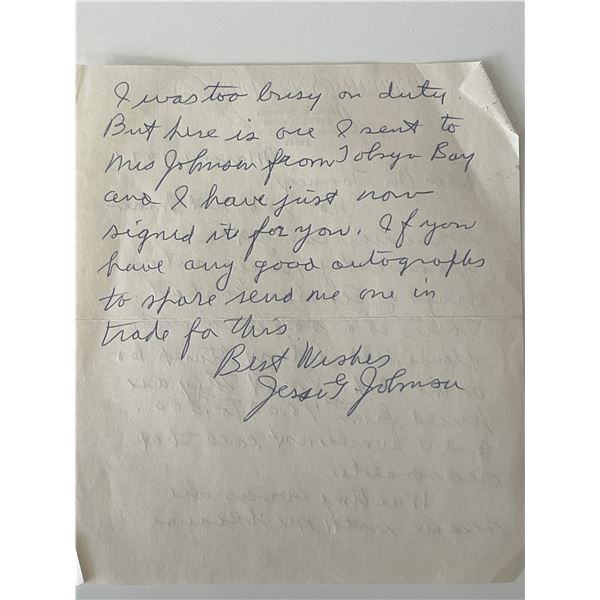 I was too busy on duty.
But here is one I sent to
Mrs Johnson from Tokyo Bay
and I have just now
signed it for you. If you
have any good autographs
to spare send me one in
trade for this
Best Wishes
Jesse G. Johnson